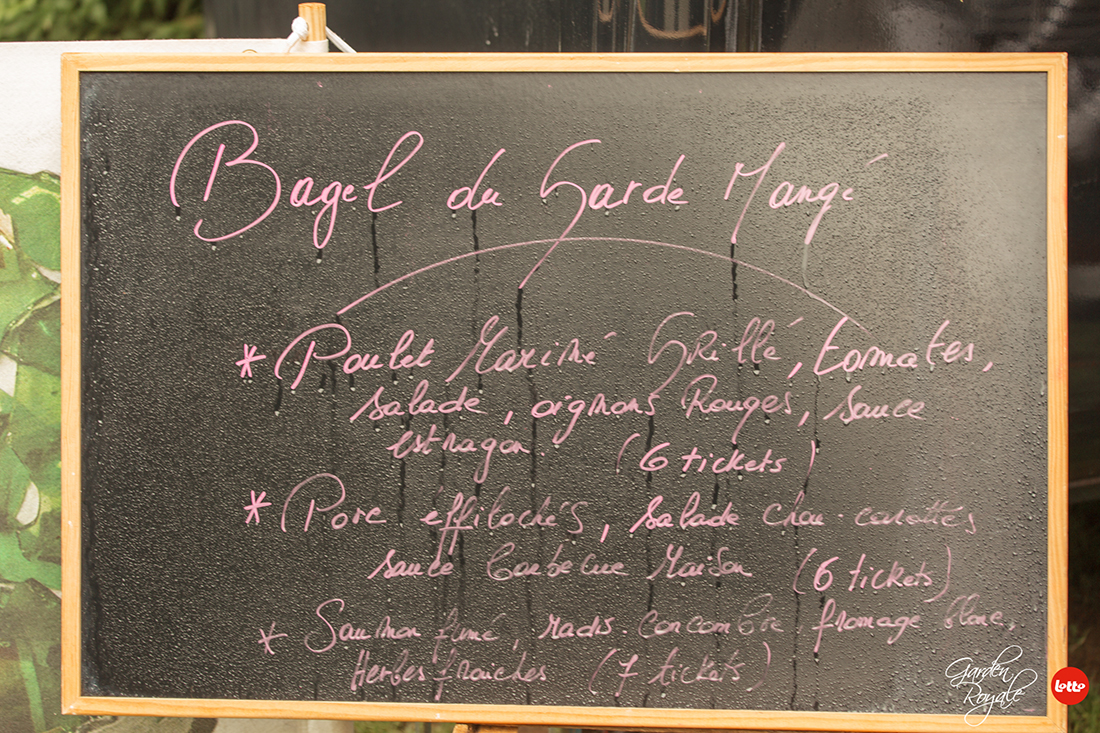 Bagel du Garde Mangé
* Poulet Mariné Grillé, tomates,
salade, oignons Rouges, sauce
estragon (6 tickets)
* Porc effilochés, salade chou-carottes
sauce barbecue Maison (6 tickets)
* Saumon fumé, radis-concombre, fromage blanc,
Herbes fraiches (7 tickets)
Garden
Royale
Lotto